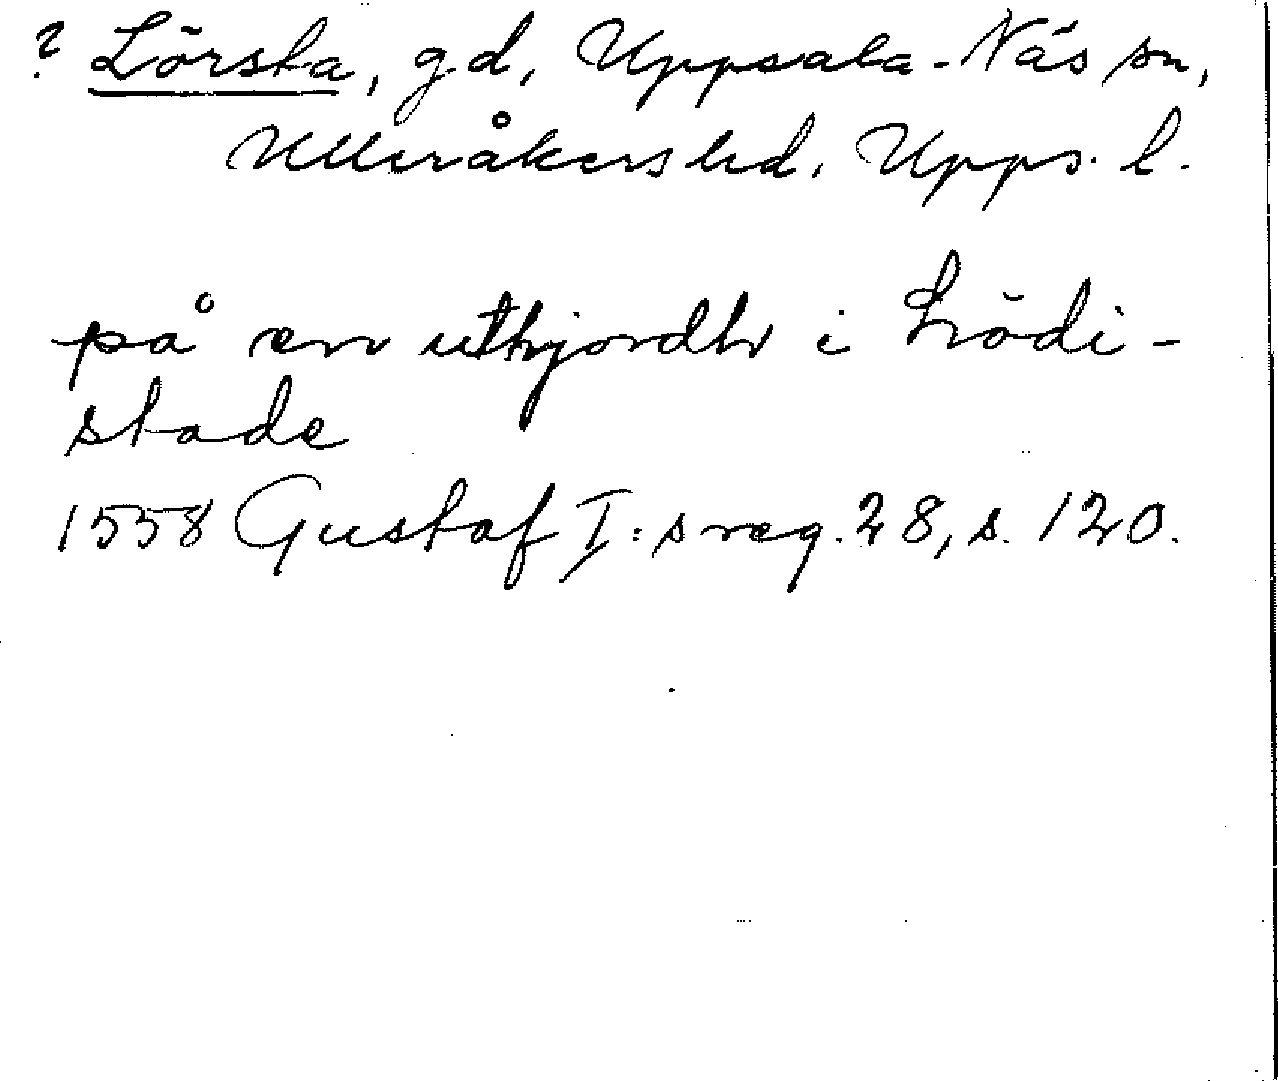 ? Lörsta, gd, Uppsala-Näs sn,
Ulleråkers hd, Upps. l.
på en uthjordh i Lrödi-
stade
1558 Gustaf I:s reg. 28, s. 120.